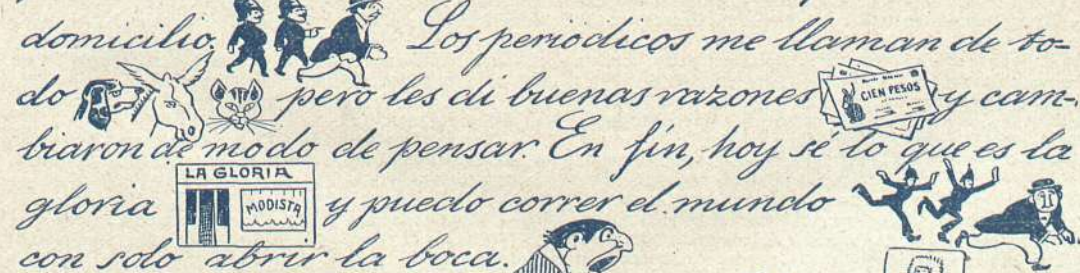 domicilio. Los periodicos me llaman de to-
do pero les di buenas razones CIEN PESOS y cam-
biaron de modo de pensar. En fin, hoy sé lo que es la
LA GLORIA
gloria MODISTA y puedo correr el mundo
con solo abrir la boca.